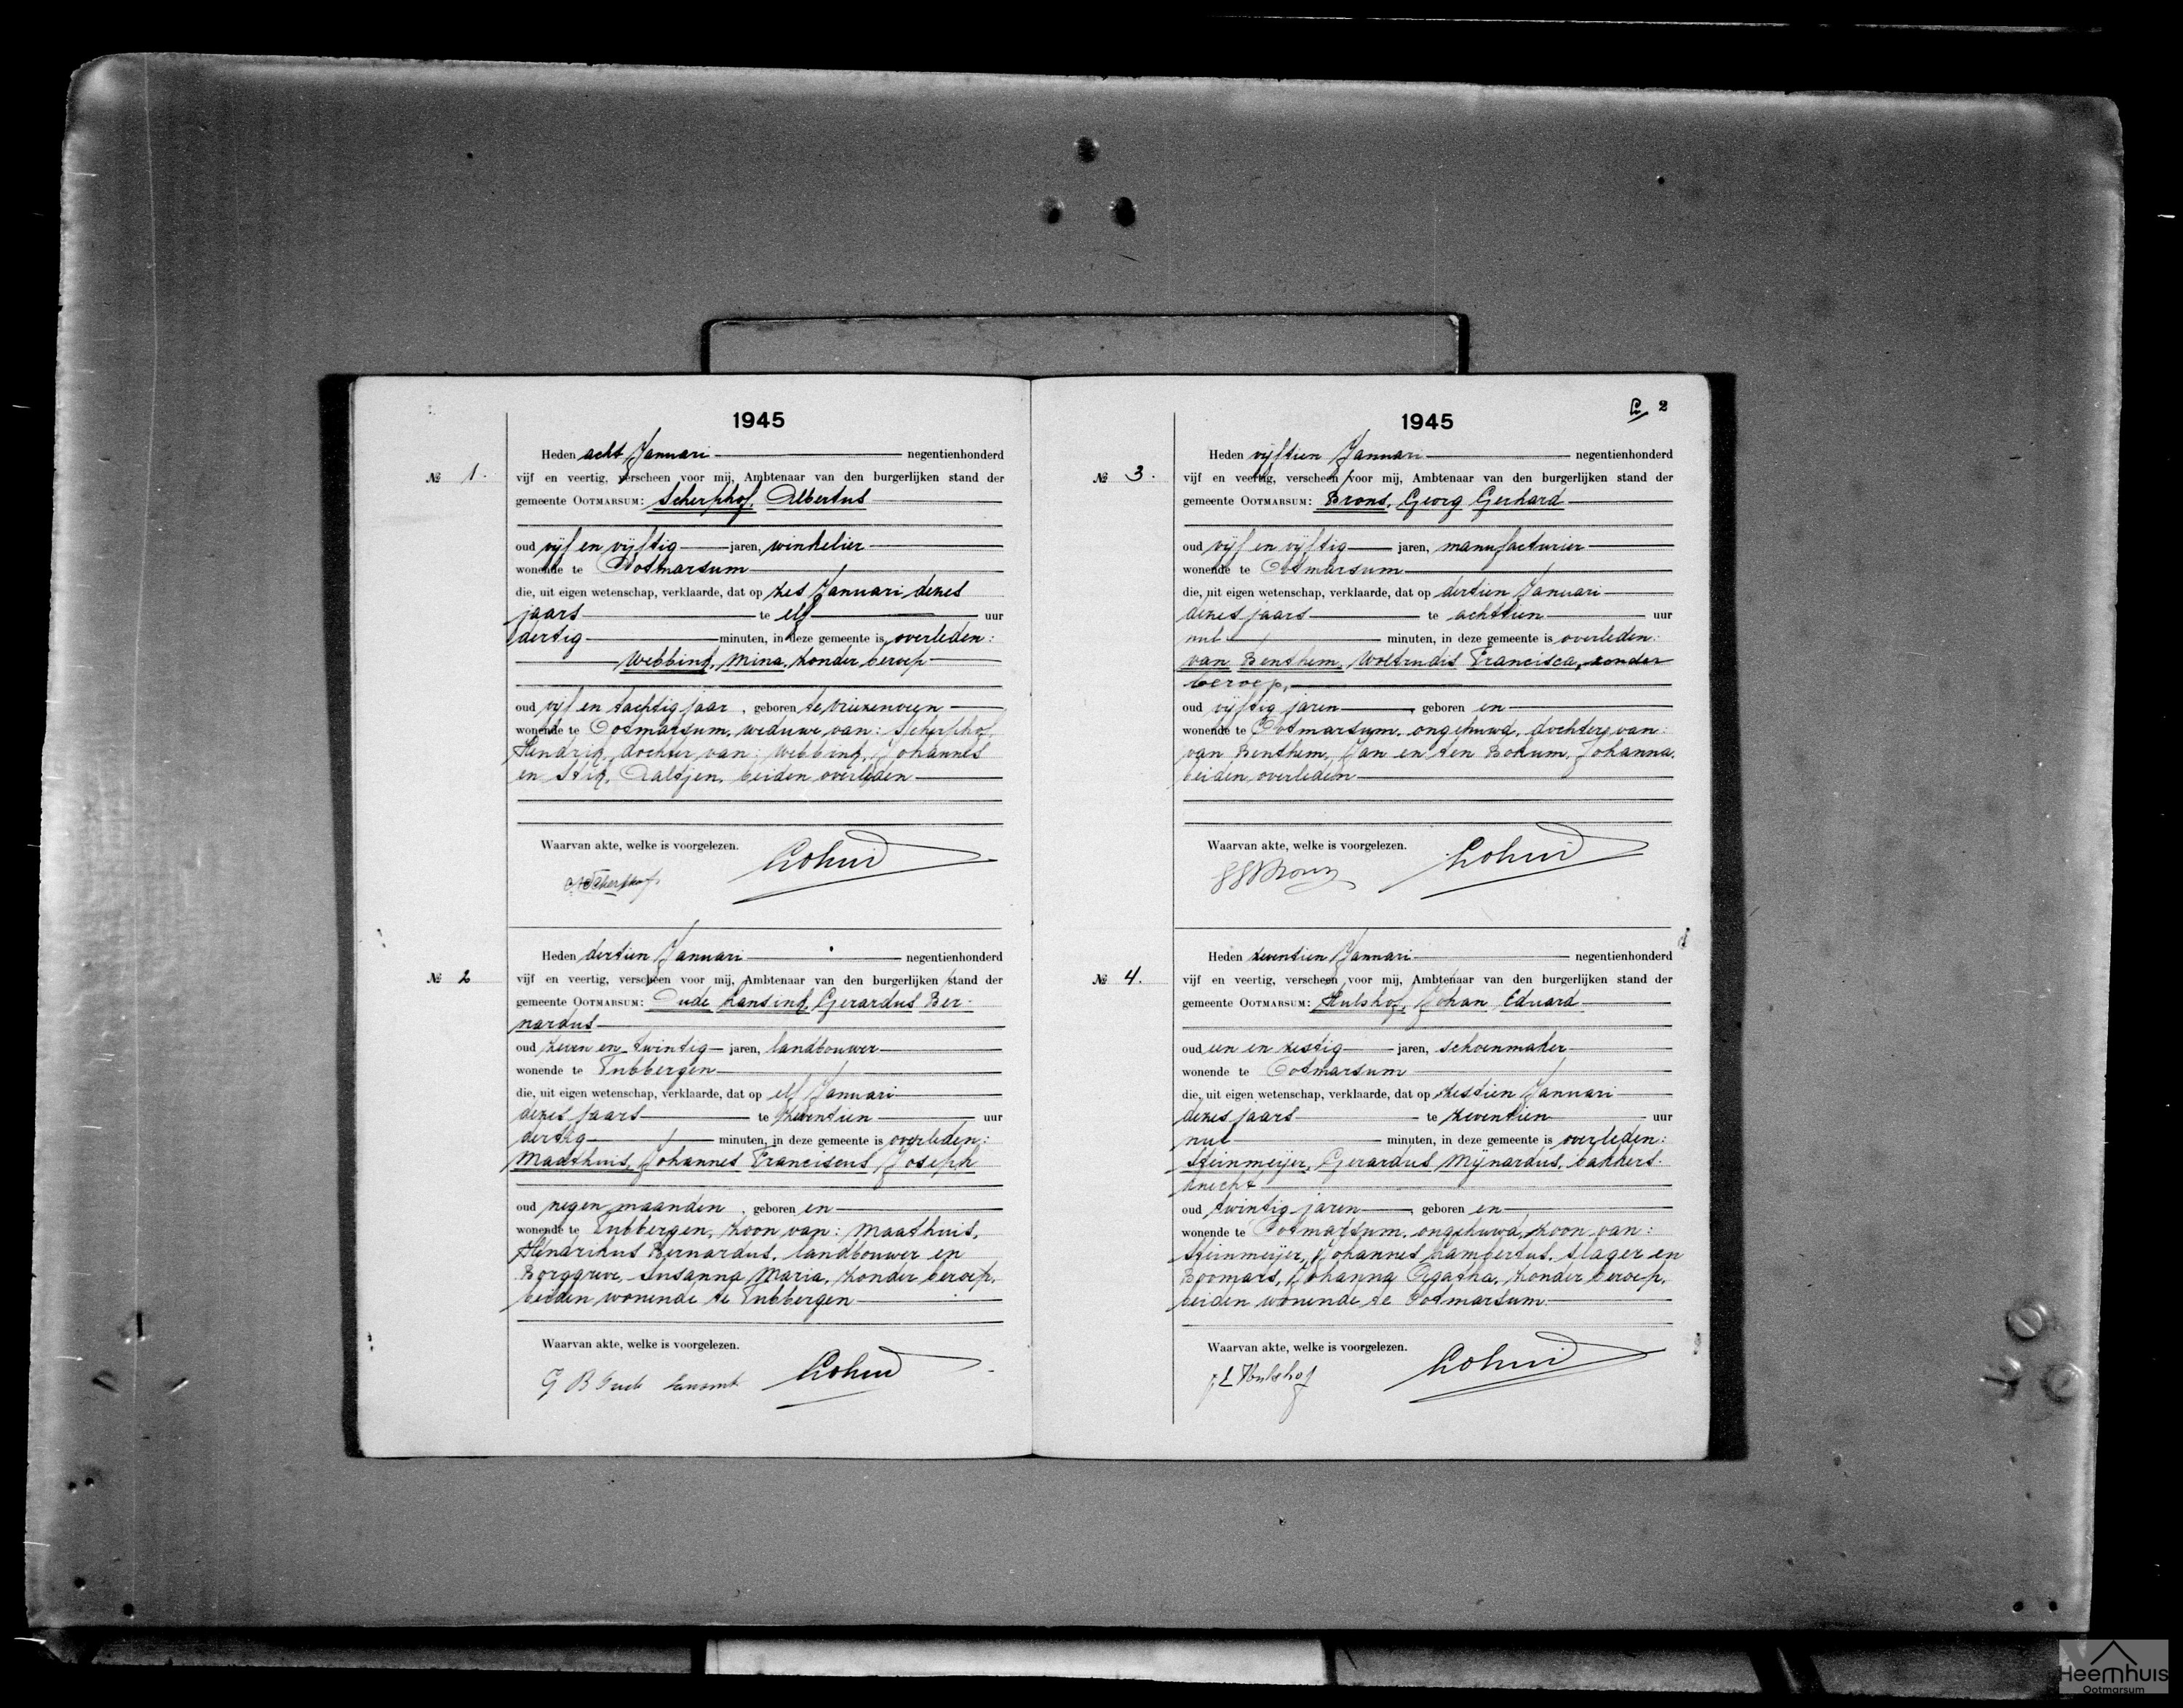 1945
Heden acht Januari negentienhonderd
№ 1. vijf en veertig, verscheen voor mij, Ambtenaar van den burgerlijken stand der
gemeente OOTMARSUM: Scherphof, Albertus
oud vijf en vijftig jaren, winkelier
wonende te Ootmarsum
die, uit eigen wetenschap, verklaarde, dat op zes Januari dezes
jaars te elf uur
dertig minuten, in deze gemeente is overleden:
Webbink, Mina, zonder beroep
oud vijf en tachtig jaar, geboren te Vriezenveen
wonende te Ootmarsum, weduwe van: Scherphof,
Hendrik, dochter van: Webbink, Johannes
en Stik, Aaltjen, beiden overleden
Waarvan akte, welke is voorgelezen.
Scherphof
№ 2 Heden dertien Januari negentienhonderd
vijf en veertig, verscheen voor mij, Ambtenaar van den burgerlijken stand der
gemeente OOTMARSUM: Oude Lansink, Gerardus Ber-
nardus
oud zeven en twintig jaren, landbouwer
wonende te Tubbergen
die, uit eigen wetenschap, verklaarde, dat op elf Januari
dezes jaars te zeventien uur
dertig minuten, in deze gemeente is overleden:
Maathuis, Johannes Franciscus Joseph
oud negen maanden, geboren en
wonende te Tubbergen, zoon van: Maathuis,
Hendrikus Bernardus, landbouwer en
Borggreve, Susanna Maria, zonder beroep,
beiden wonende te Tubbergen
Waarvan akte, welke is voorgelezen.
G B Oude
1945 2
Heden vijftien Januari negentienhonderd
№ 3. vijf en veertig, verscheen voor mij, Ambtenaar van den burgerlijken stand der
gemeente OOTMARSUM: Brons, Georg Gerhard
oud vijf en vijftig jaren, manufacturier
wonende te Ootmarsum
die, uit eigen wetenschap, verklaarde, dat op dertien Januari
dezes jaars te achttien uur
nul minuten, in deze gemeente is overleden:
van Benthem, Woltrudis Francisca, zonder
beroep,
oud vijftig jaren, geboren en
wonende te Ootmarsum, ongehuwd, dochter van:
van Benthem, Jan en ten Bokum, Johanna,
beiden overleden
Waarvan akte, welke is voorgelezen.
GG Brons
Heden zeventien Januari negentienhonderd
№ 4. vijf en veertig, verscheen voor mij, Ambtenaar van den burgerlijken stand der
gemeente OOTMARSUM: Hulshof, Johan Eduard
oud een en zestig jaren, schoenmaker
wonende te Ootmarsum
die, uit eigen wetenschap, verklaarde, dat op zestien Januari
dezes jaars te zeventien uur
nul minuten, in deze gemeente is overleden:
Steinmeijer, Gerardus Mijnardus, bakkers-
knecht
oud twintig jaren, geboren en
wonende te Ootmarsum, ongehuwd, zoon van:
Steinmeijer, Johannes Lambertus, slager en
Boomars, Johanna Agatha, zonder beroep,
beiden wonende te Ootmarsum.
Waarvan akte, welke is voorgelezen.
J. E Hulshof
Heemhuis
Ootmarsum